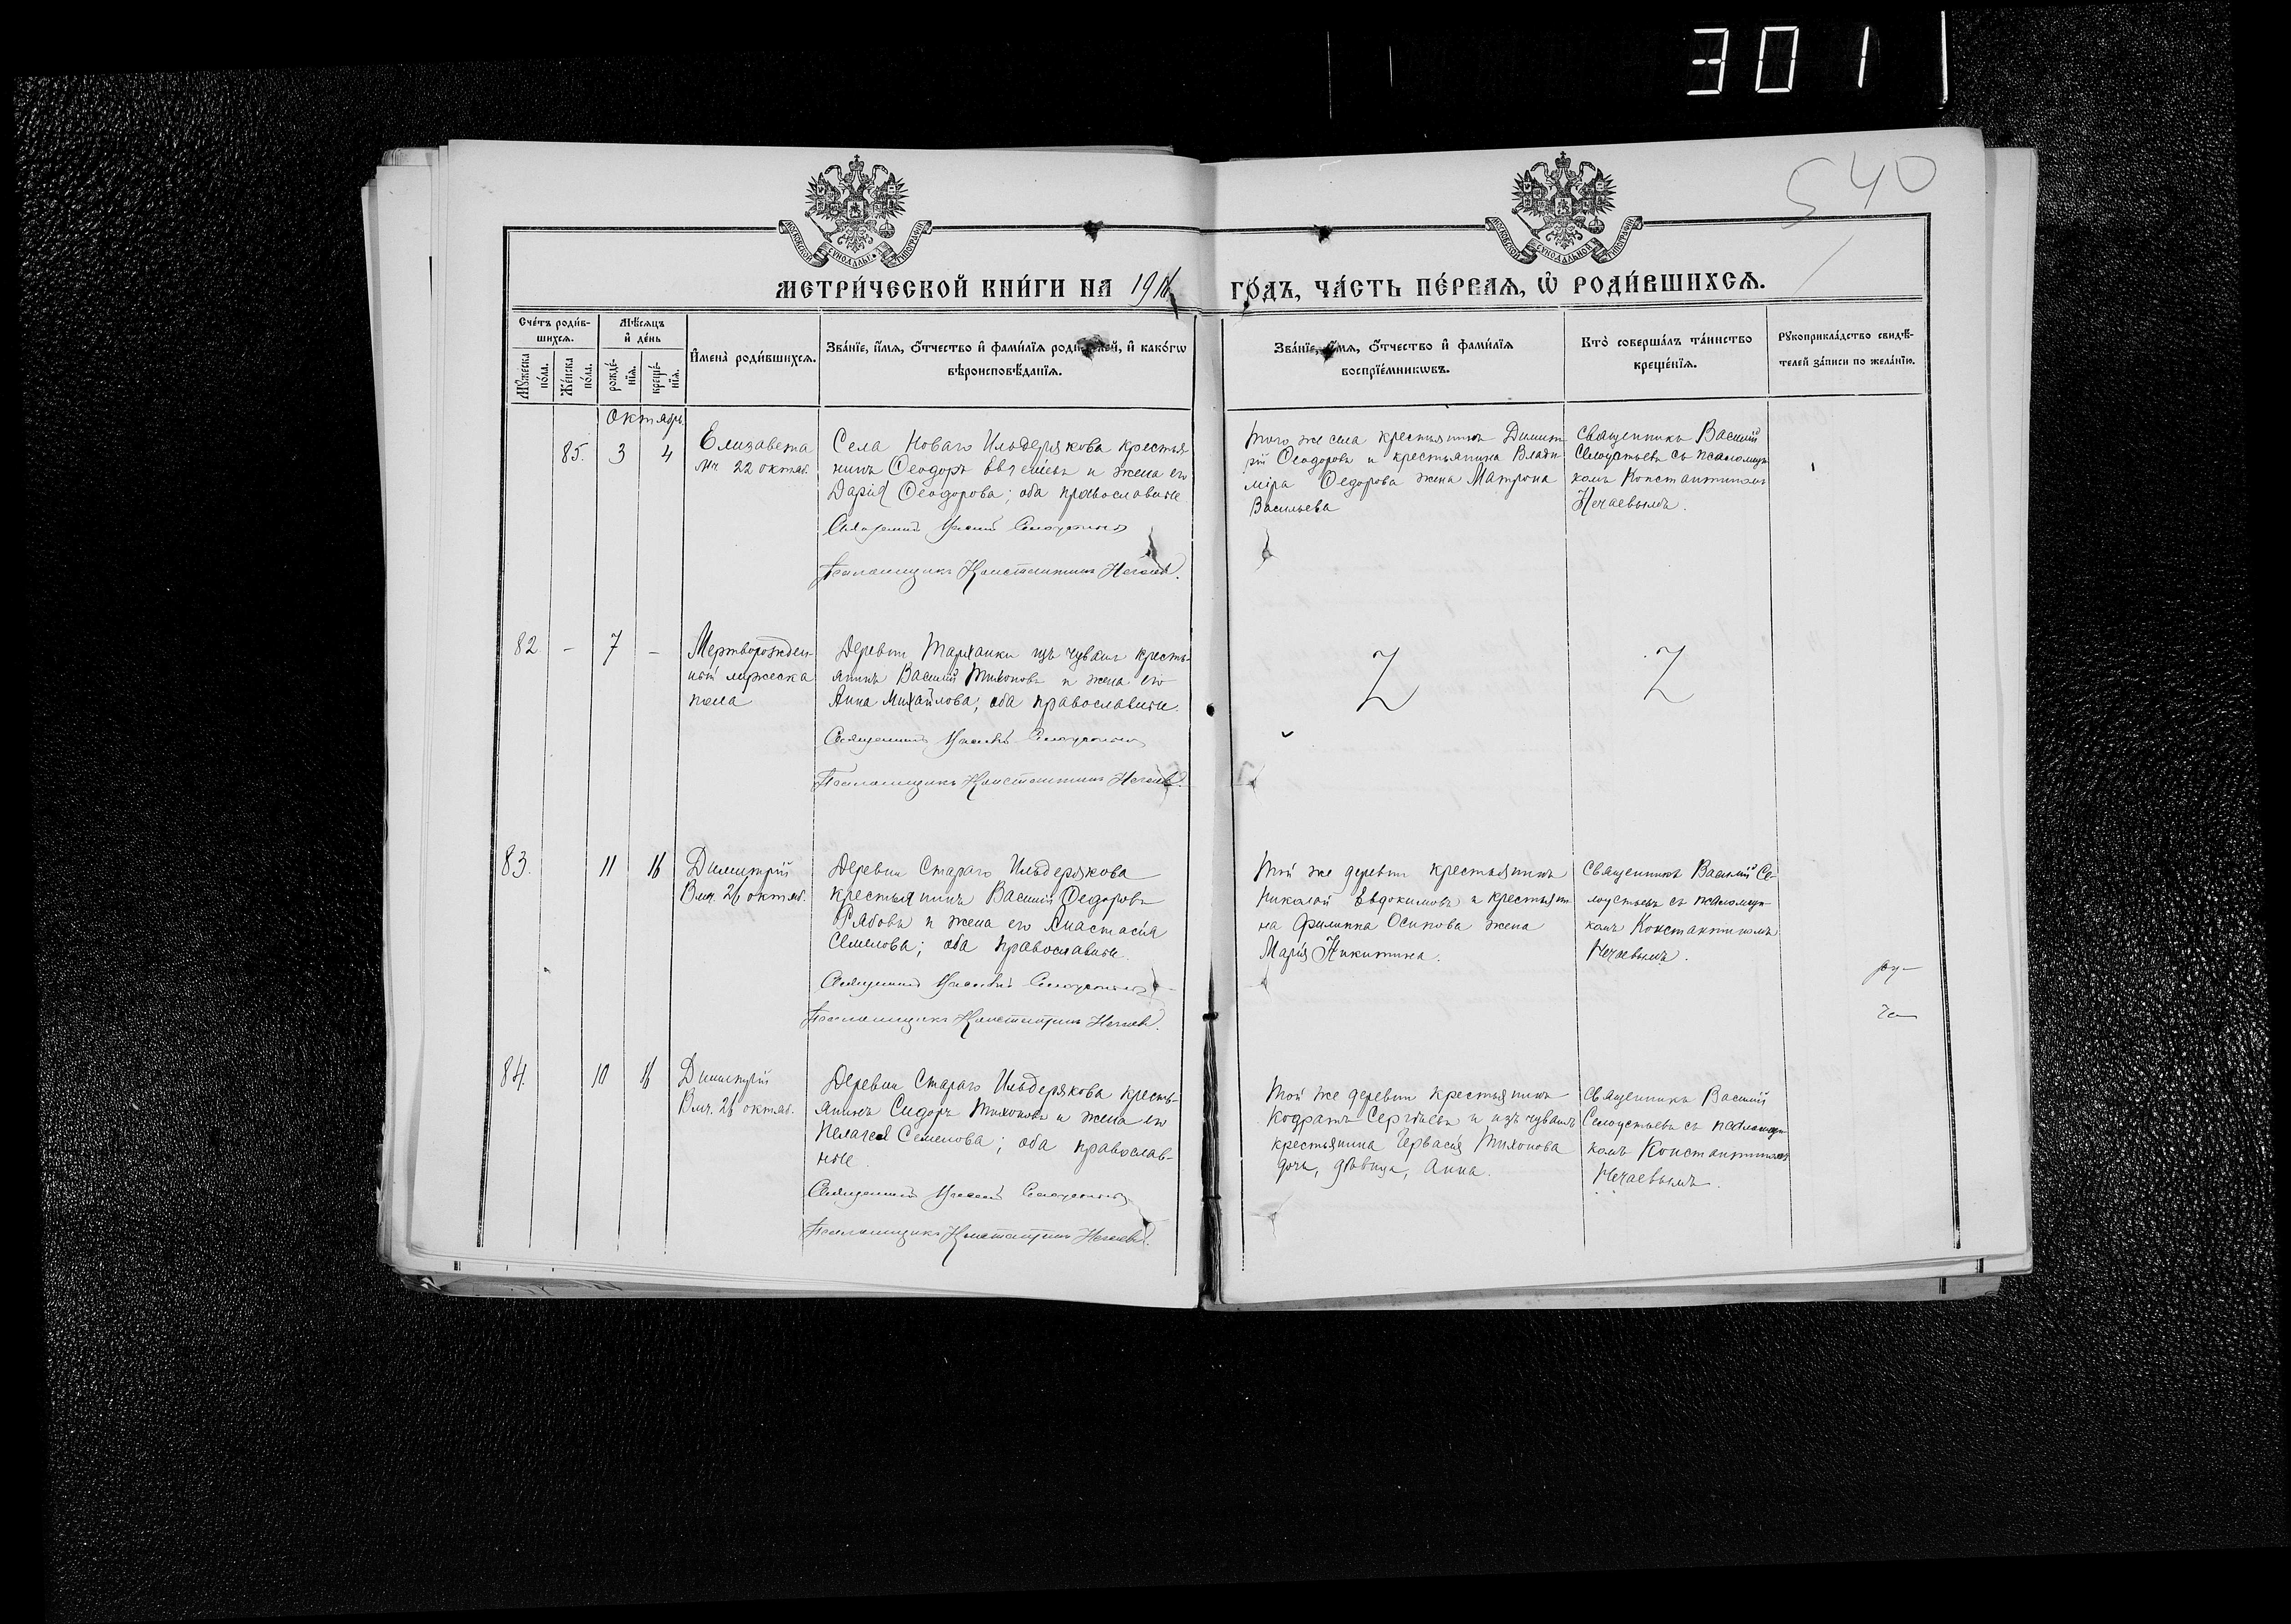 301
540
МОСКОВСКОЙ СѴНОДАЛЬНОЙ ТИПОГРАФІИ
МОСКОВСКОЙ СѴНОДАЛЬНОЙ ТИПОГРАФІИ
МЕТРИ́ЧЕСКОЙ КНИ́ГИ НА 191
ГО́ДЪ, ЧА́СТЬ ПЕ́РВАѦ, Ѡ҆ РОДИ́ВШИХСѦ.
Сче́тъ роди́в-
шихсѧ.
Мѣ́сѧцъ
и҆ де́нь
Мꙋ́жеска
по́ла.
Же́нска
по́ла.
рожде́-
нїѧ.
креще́-
нїѧ.
И҆мена̀ роди́вшихсѧ.
Зва́нїе, и҆́мѧ, ѻ҆́тчество и҆ фами́лїѧ роди́телей, и҆ како́гѡ
вѣроисповѣ́данїѧ.
Зва́нїе, и҆́мѧ, ѻ҆́тчество и҆ фами́лїѧ
воспрїе́мникѡвъ.
Кто̀ соверша́лъ та́инство
креще́нїѧ.
Рꙋкоприкла́дство свидѣ́-
телей за́писи по жела́нїю.
Октябрь
85. 3 4
Елизавета
мч. 22 октяб.
Села Новаго Ильдерякова крестья
нинъ Ѳеодоръ и жена его
Дарія Ѳеодорова; оба православные
Священникъ Василій Селоустьевъ
Псаломщикъ Константинъ Нечаевъ.
Того же села крестьянинъ Димит
рій Ѳеодоровъ и крестьянина Влади
міра Ѳедорова жена Матрона
Васильева
Священникъ Василій
Селоустьевъ съ псаломщи
комъ Константиномъ
Нечаевымъ.
82 - 7 -
Мертворожден
ный мужеска
пола
Деревни Тарханки изъ чувашъ кресть-
янинъ Василій Тихоновъ и жена его
Анна Михайлова; оба православные.
Священникъ Василій Селоустьевъ
Псаломщикъ Константинъ Нечаевъ.
Z
Z
83. 11 16
Димитрій
Влмч. 26 октяб.
Деревни Стараго Ильдерякова
крестьянинъ Василій Ѳедоровъ
Рябовъ и жена его Анастасія
Семенова; оба православные.
Священникъ Василій Селоустьевъ
Псаломщикъ Константинъ Нечаевъ.
Той же деревни крестьянинъ
Николай Евдокимовъ и крестьяни
на Филиппа Осипова жена
Марія Никитина.
Священникъ Василій Се-
лоустьевъ съ псаломщи-
комъ Константиномъ
Нечаевымъ.
84. 10 16
Димитрій
Влмч. 26 октяб.
Деревни Стараго Ильдерякова кресть-
янинъ Сидоръ Тихоновъ и жена его
Пелагея Семенова; оба православ-
ные.
Священникъ Василій Селоустьевъ
Псаломщикъ Константинъ Нечаевъ.
Той же деревни крестьянинъ
Кодратъ Сергѣевъ и изъ чувашъ
крестьянина Гервасія Тихонова
дочь, дѣвица, Анна.
Священникъ Василій
Селоустьевъ съ псаломщи
комъ Константиномъ
Нечаевымъ.